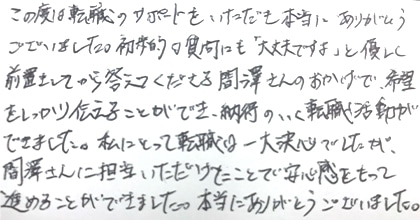 この度は転職のサポートをいただき本当にありがとう
ございました。初歩的な質問にも「大丈夫ですよ」と優しく
前置きしてから答えてくださる間澤さんのおかげで、希望
をしっかり伝えることができ、納得のいく転職活動が
できました。私にとって転職は一大決心でしたが、
間澤さんに担当いただけたことで安心感をもって
進めることができました。本当にありがとうございました。